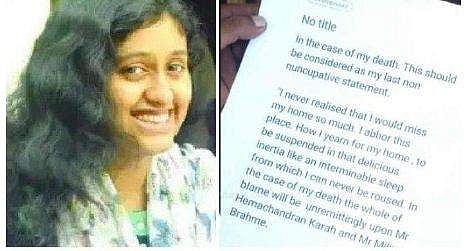 No title
In the case of my death. This should
be considered as my last non
nuncupative statement.
"I never realised that I would miss
my home so much. I abhor this
place. How I yearn for my home , to
be suspended in that delicious
inertia like an interminable sleep
from which I can never be roused. In
the case of my death the whole of
blame will be unremittingly upon Mr
Hemachandran Karah and Mr
Brahme.